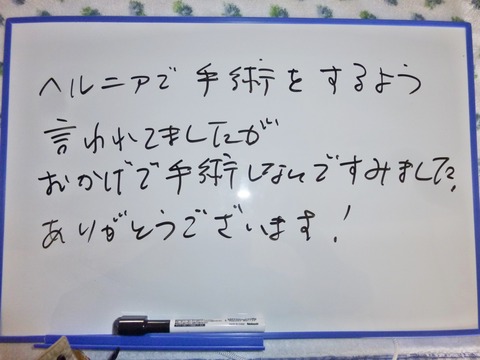 ヘルニアで手術をするよう
言われてましたが
おかげで手術しないですみました。
ありがとうございます!